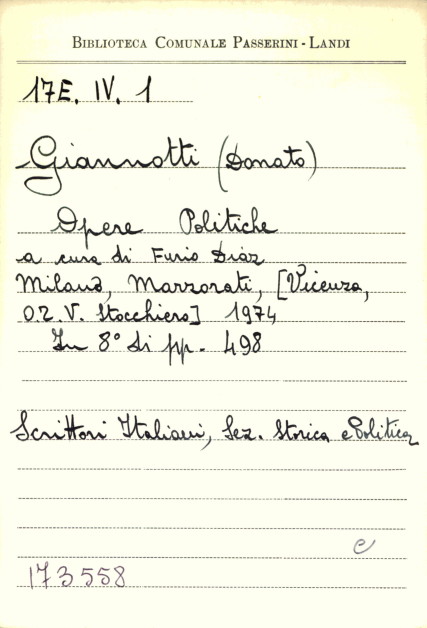 BIBLIOTECA COMUNALE PASSERINI - LANDI
17E. IV. 1
Giannotti (Donato)
Opere Politiche
a cura di Furio Diaz
Milano, Marzorati, [Vicenza,
O.Z.V. Stocchiero] 1974
In 8° di pp. 498
Scrittori Italiani, Sez. Storica e Politica
e
173558